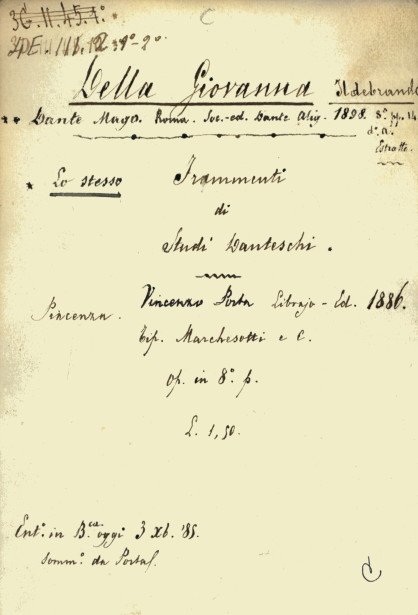 C
3G.11.45.4°
Della Giovanna Ildebrando
** Dante Mago. Roma. Soc.-ed. Dante Alig. 1898. 8° pp. 14
d° a.
Estratto.
* Lo stesso Frammenti
di
Studi Danteschi.
Piacenza. Vincenzo Porta Librajo-Ed. 1886.
Tip. Marchesotti e C.
op. in 8° p.
L. 1,50.
Ent°. in B.ca oggi 3 xb. '85.
somm°. da
C